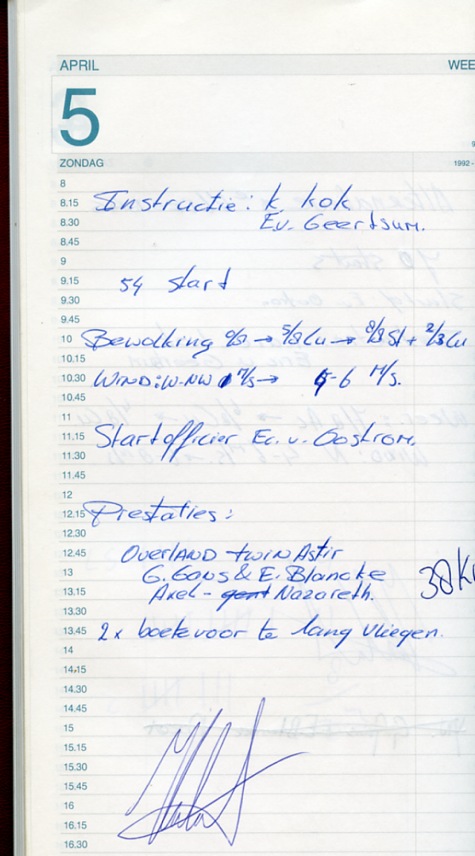 APRIL WEE
5
ZONDAG 1992-
8
8.15 Instructie: K. Kok
8.30 Ev. Geertsum.
8.45
9
9.15 54 start
9.30
9.45
10 Bewolking 0/8 → 5/8 Cu → 8/8 St + 2/8 Cu
10.15
10.30 WIND: W-NW 7/s → 5-6 M/s.
10.45
11
11.15 Startofficier Ev. v. Oostrom.
11.30
11.45
12
12.15 Prestaties:
12.30
12.45 OVERLAND twin Astir
13 G. Gons & E. Blancke 38 K
13.15 Axel - gent Nazareth.
13.30
13.45 2x boete voor te lang vliegen.
14
14.15
14.30
14.45
15
15.15
15.30
15.45
16
16.15
16.30